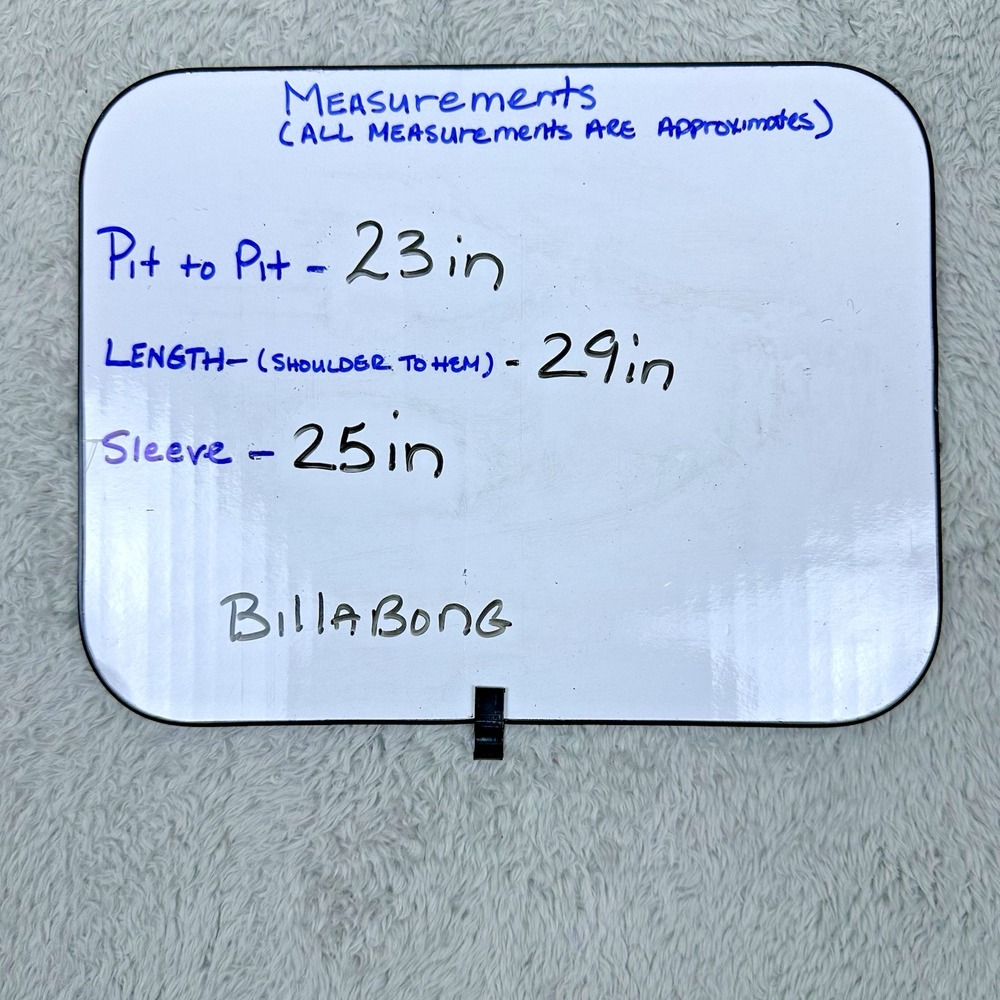 Measurements
(ALL MEASurements ARE Approximates)
Pit to Pit - 23in
LENGTH- (SHOULDER TO HEM) - 29in
Sleeve - 25in
BillABonG